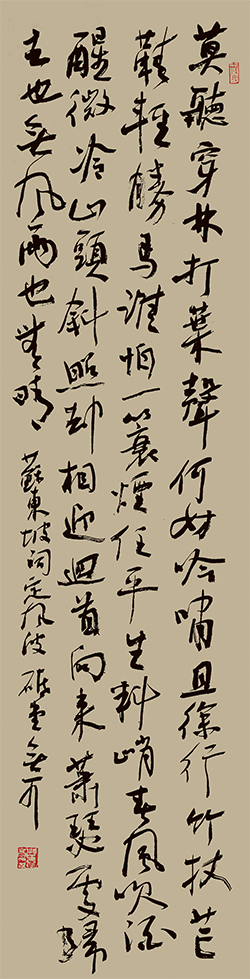 莫聽穿林打葉聲何妨吟嘯且徐行竹杖芒
鞋輕勝馬誰怕一蓑煙任平生料峭春風吹酒
醒微冷山頭斜照却相迎迴首向來蕭瑟處歸
去也無風雨也無晴 蘇東坡詞定風波